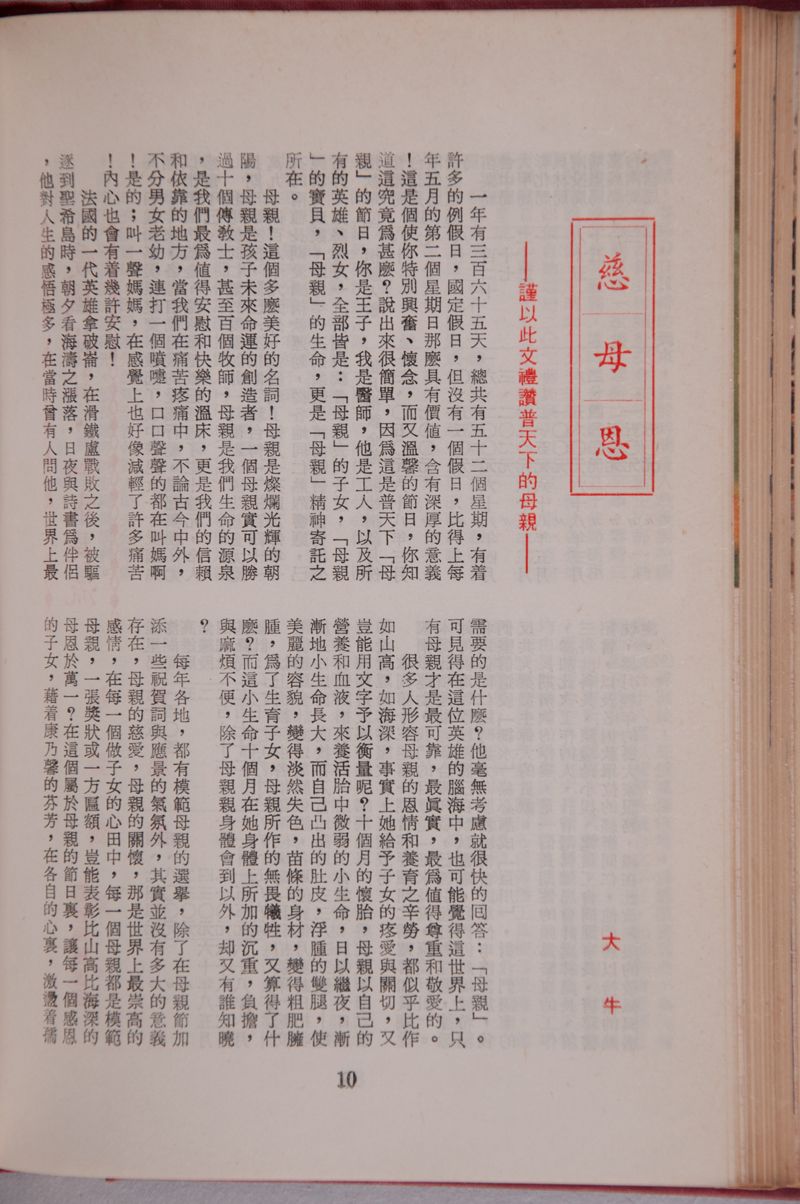 慈母恩
——謹以此文禮讚普天下的母親——
大牛
一年有三百六十五天，總共有五十二個星期，有着
許多的例假日，國定假日，但沒有一個假日，比得上每
年五月的第二個星期日那麽具有價值，含有深厚的意義
！這是個使你特別興奮、懷念，而又溫馨的節日，你知
道這究竟爲甚麽？說出來很簡單，因爲這是普天下「母
親」的節日，你是王子，我是醫師，他是工人，以及所
有的英雄、烈女，全部皆是：「母親」的子女，「母親
」的寶貝，「母親」的生命，更是「母親」精神寄託之
所在。
母親！這個多麽美好的名詞！母親是燦爛光輝的朝
陽，母親是孩子未來命運的創造者，一個母親實可以勝
過十個傳教士，甚至百個牧師，母親是我們生命的源泉
，是我們最爲值得安慰和快樂的溫床，更是我們的信賴
和依靠的地方，當我們在痛苦疼痛中，不論古今中外，
不分男女老幼，連打一個噴嚏，口口聲聲的都在叫媽啊
！是的；叫一聲媽媽，在感覺上也好像減輕了許多痛苦
！內心也會有着幾許安慰！
法國的一代英雄拿破崙，在滑鐵盧戰敗之後，被驅
逐到聖希島時，朝夕看海濤之漲落，日夜與詩書爲伴侶
，他對人生的感悟極多，在當時曾有人問他，世界上最
需要的是什麽？他毫無考慮就很快的回答：「母親」。
可見得在這位英雄的腦海中，也可能覺得這世界上，只
有母親才是最可靠，最眞實，最爲值得尊重和敬愛的。
很多人形容母親的恩情和養育之辛勞，都似乎比作
如山高，如海深，事實上她給予子女的疼愛與關切，又
豈能用文字予以衡量呢？十個月的懷胎，母親以自己的
營養和血液，來養活胎中微弱的小生命，日以繼夜，漸
漸地小生命長大，而自己凸出的肚皮，浮腫的雙腿，使
美麗的容貌，變得淡然失色，苗條的身材，變得粗肥臃
腫，爲了生育子女，母親所作的無畏犧牲，又算得了什
麽？而這小生命十個月在她身體上所加的沉重，負擔，
與麻煩不便，除了母親親身體會到以外，却又有誰知曉
？
每年各地，都有模範母親的選舉，除了在母親節加
添一些祝賀詞與應景的氣氛外，其實並沒有多大的意義
存在，母親的慈愛，母親的關懷，那是世界上最崇高的
感情，在每一個做子女的心田中，每一個母親都是模範
母親，一張獎狀或一方匾額，豈能表彰比山高比海深的
母恩於萬一？在這個屬於母親的節日裏，讓每一個感恩
的子女，藉着康乃馨的芬芳，在各自的心裏，激盪着孺
10